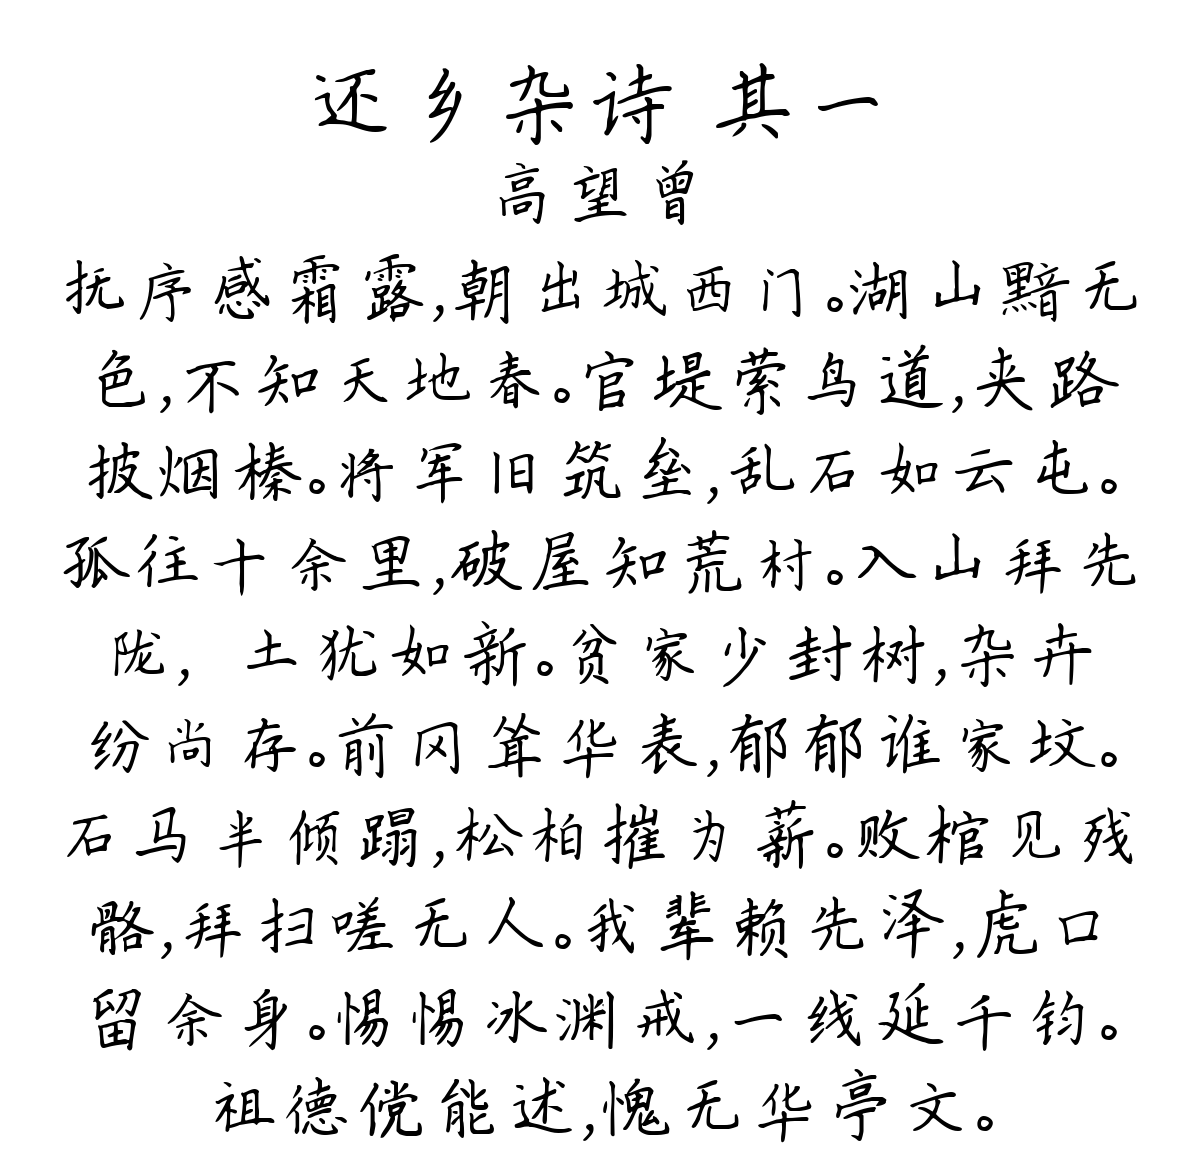 还乡杂诗 其一
高望曾
抚序感霜露,朝出城西门。湖山黯无
色,不知天地春。官堤萦鸟道,夹路
披烟榛。将军旧筑垒,乱石如云屯。
孤往十余里,破屋知荒村。入山拜先
陇, 土犹如新。贫家少封树,杂卉
纷尚存。前冈耸华表,郁郁谁家坟。
石马半倾蹋,松柏摧为薪。败棺见残
骼,拜扫嗟无人。我辈赖先泽,虎口
留余身。惕惕冰渊戒,一线延千钧。
祖德傥能述,愧无华亭文。